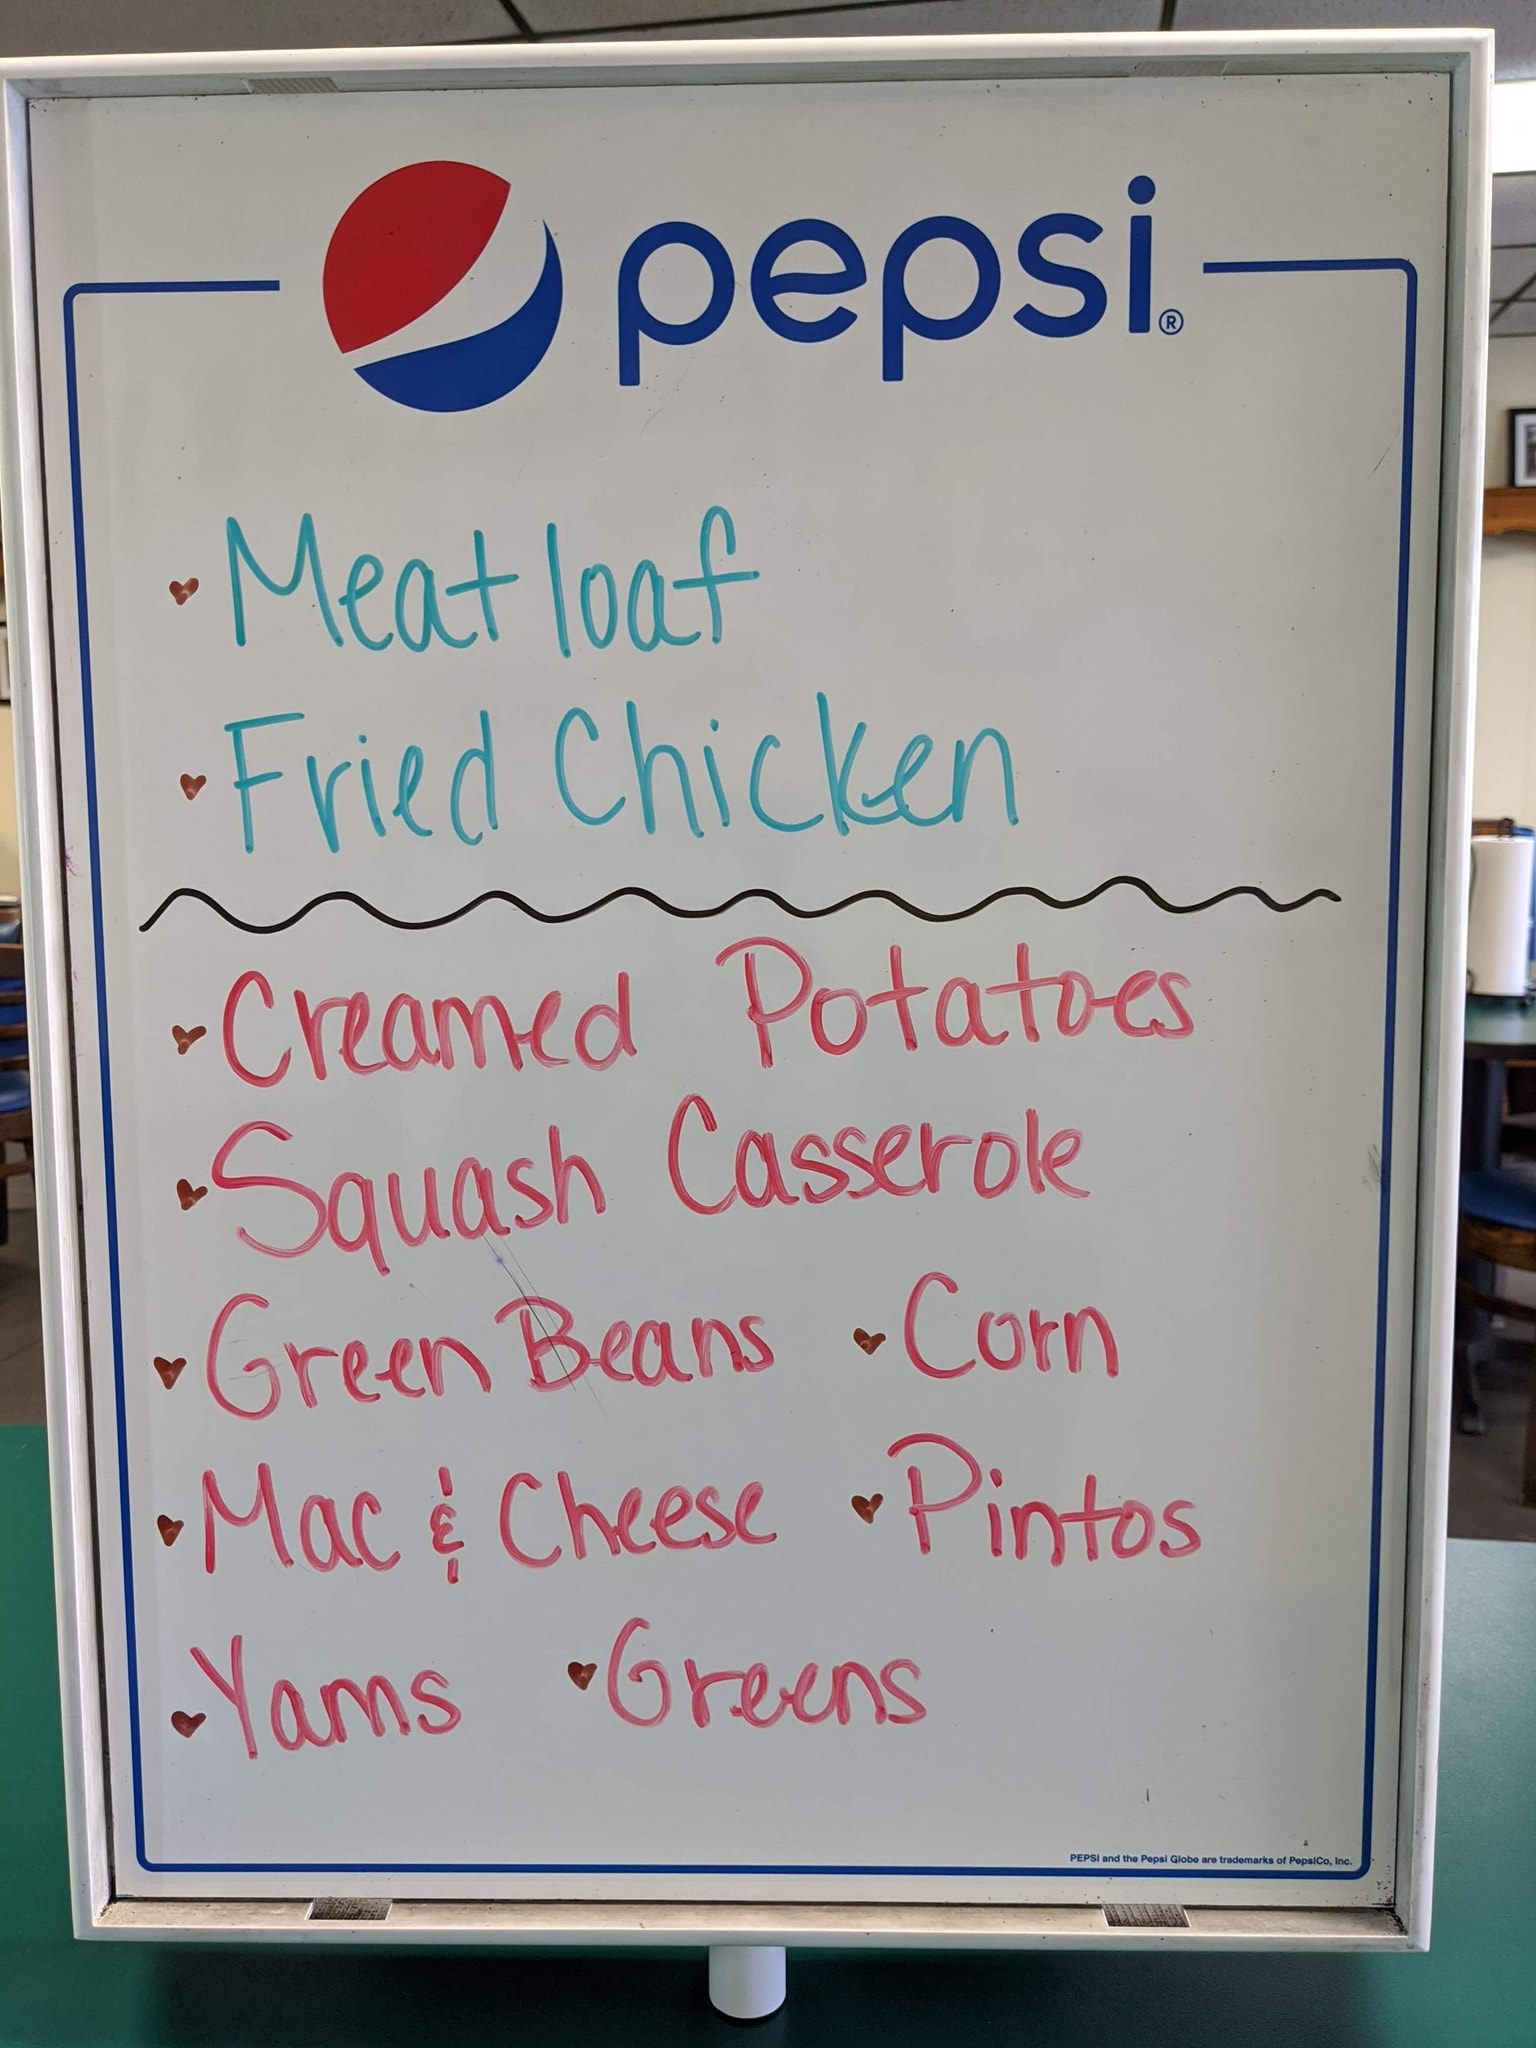 pepsi®
Meatloaf
Fried Chicken
Creamed Potatoes
Squash Casserole
Green Beans Corn
Mac & Cheese Pintos
Yams Greens
PEPSI and the Pepsi Globe are trademarks of PepsiCo, Inc.